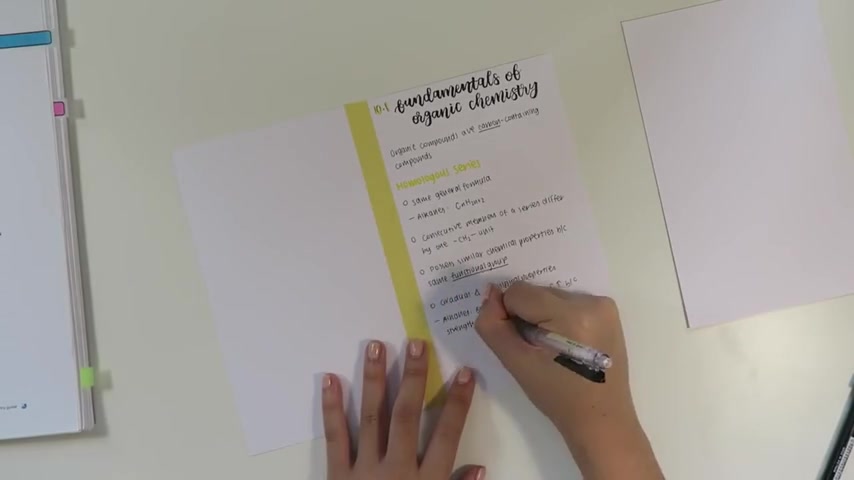 10.1 fundamentals of
organic chemistry
Organic compounds are carbon-containing
compounds
Homologous Series
o same general formula
- Alkanes: CnH2n+2
o consecutive members of a series differ
by one -CH2- unit
o possess similar chemical properties b/c
same functional group
o Gradual Δ properties
- Alkanes: b/c
strength